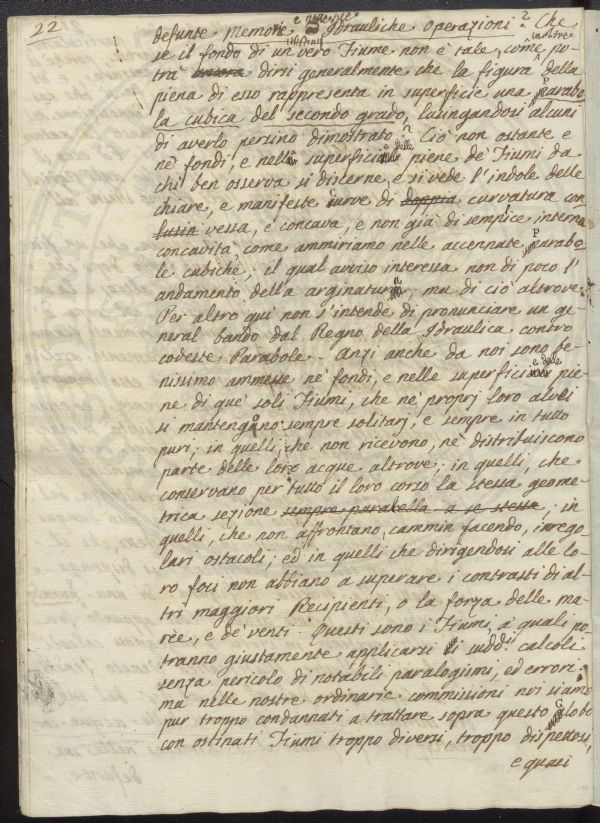 22
e potersile
defunte Memorie Idrauliche operazioni? Che
se il fondo di un vero Fiume non è tale, come inoltre po-
trà dirsi generalmente che la figura della
piena di esso rappresenta in superficie una Parabo
la cubica del secondo grado, lusingandosi alcuni
di averlo persino dimostrato? Ciò non ostante e
nè fondi, e nelle superficie delle piene de' Fiumi da
chi ben osserva si discerne, e si vede l'indole delle
chiare, e manifeste curve di doppia curvatura con
vessa, e concava, e non già di semplice interna
concavità, come ammiriamo nelle accennate Parabo
le cubiche; il qual avviso interessa non di poco l'
andamento della arginatura; ma di ciò altrove.
Per altro quì non s'intende di pronunciare un ge
neral bando dal Regno della Idraulica contro
codeste Parabole. Anzi anche da noi sono be-
nissimo ammesse nè fondi, e nelle superficie delle pie
ne di que' soli Fiumi, che ne' proprj loro alvei
si mantengono sempre solitarj, e sempre in tutto
puri; in quelli, che non ricevono, nè distribuiscono
parte delle loro acque altrove; in quelli, che
conservano per tutto il loro corso la stessa geome-
trica sezione sempre parabella a se stessa; in
quelli, che non affrontano, cammin facendo, inrego
lari ostacoli; ed in quelli che dirigendosi alle lo-
ro foci non abbiano a superare i contrasti di al-
tri maggiori Recipienti, o la forza delle ma-
rèe, e de' venti. Questi sono i Fiumi, a' quali po-
tranno giustamente applicarsi i sudd.i calcoli
senza pericolo di notabili paralogismi, ed errori:
ma nelle nostre ordinarie commissioni noi siamo
pur troppo condannati a trattare sopra questo Globo
con ostinati Fiumi troppo diversi, troppo dispettosi,
e quasi